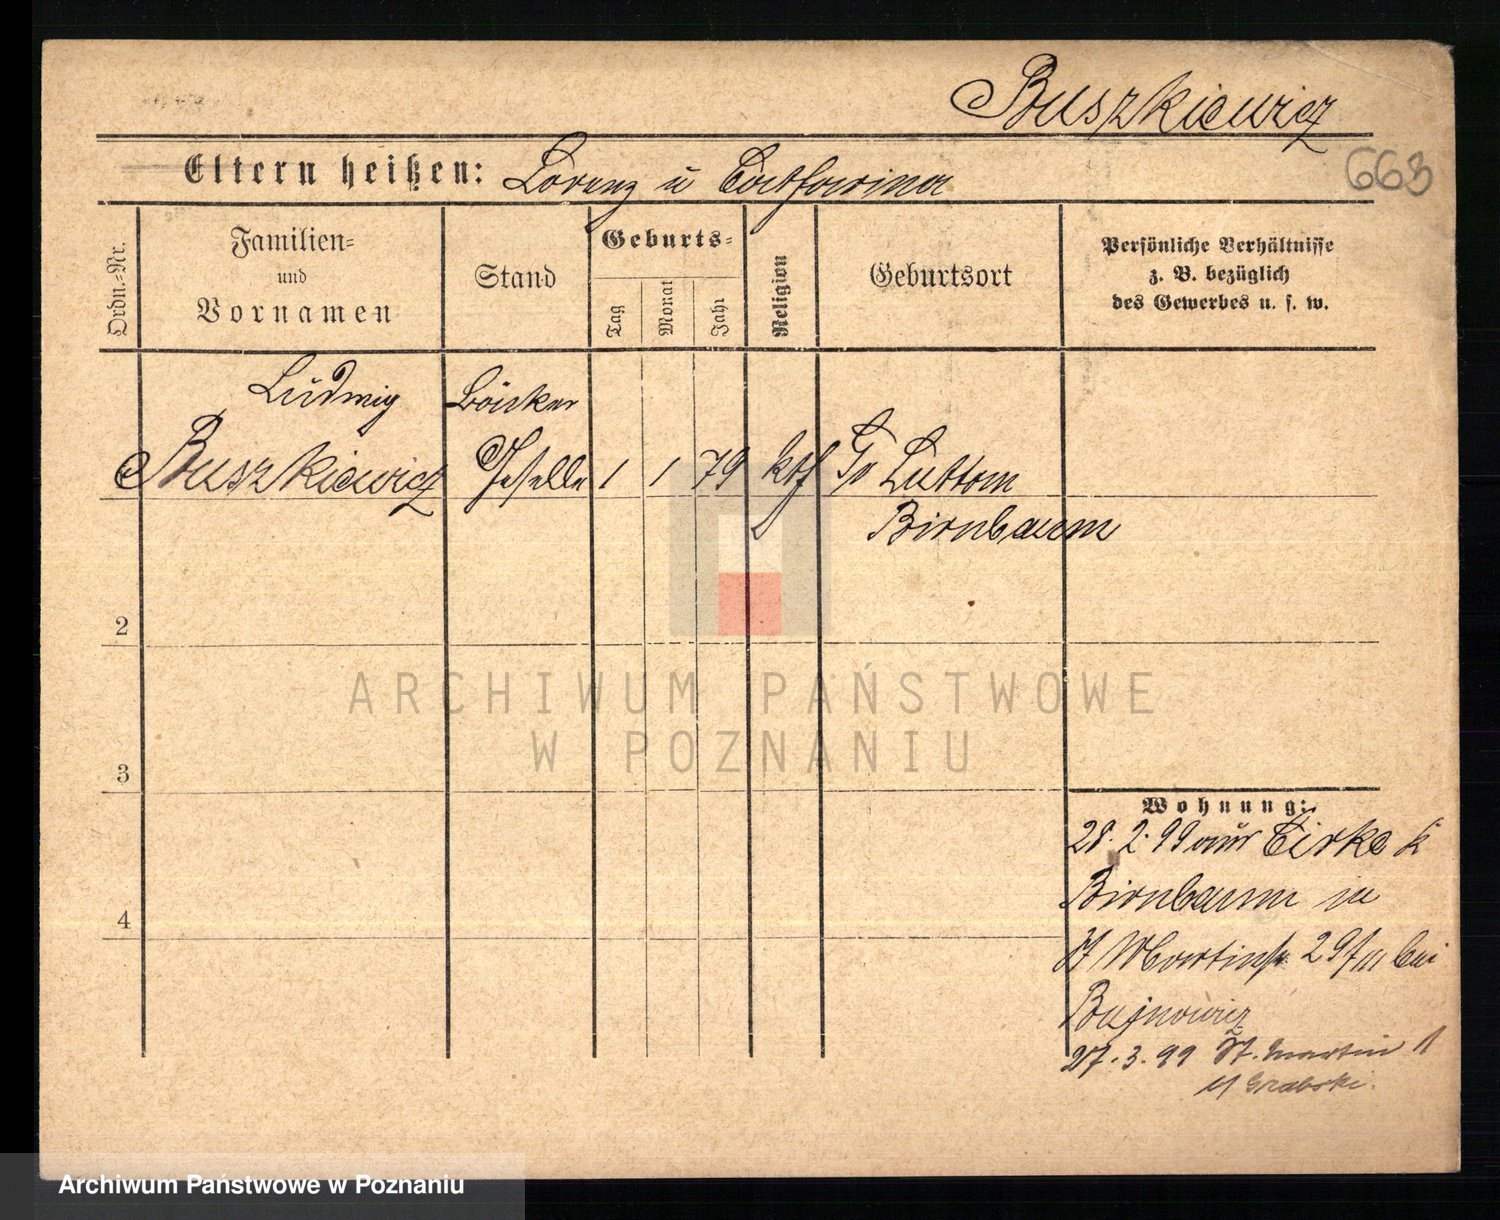 Buszkiewicz
663
Eltern heißen: Lorenz u Catharina
Ordn.-Nr.
Familien-
und
Vornamen
Stand
Geburts-
Tag
Monat
Jahr
Religion
Geburtsort
Persönliche Verhältnisse
z. B. bezüglich
des Gewerbes u. s. w.
Ludwig Bäcker
Buszkiewicz Geselle 1 1 79 kth Gr Luttom
Birnbaum
2
3
4
Wohnung:
28. 2. 99 aus Zirke k
Birnbaum in
St Martinstr 29 III bei
Bujnowicz
27. 3. 99 St. Martin
Grabski.
ARCHIWUM PAŃSTWOWE
W POZNANIU
Archiwum Państwowe w Poznaniu